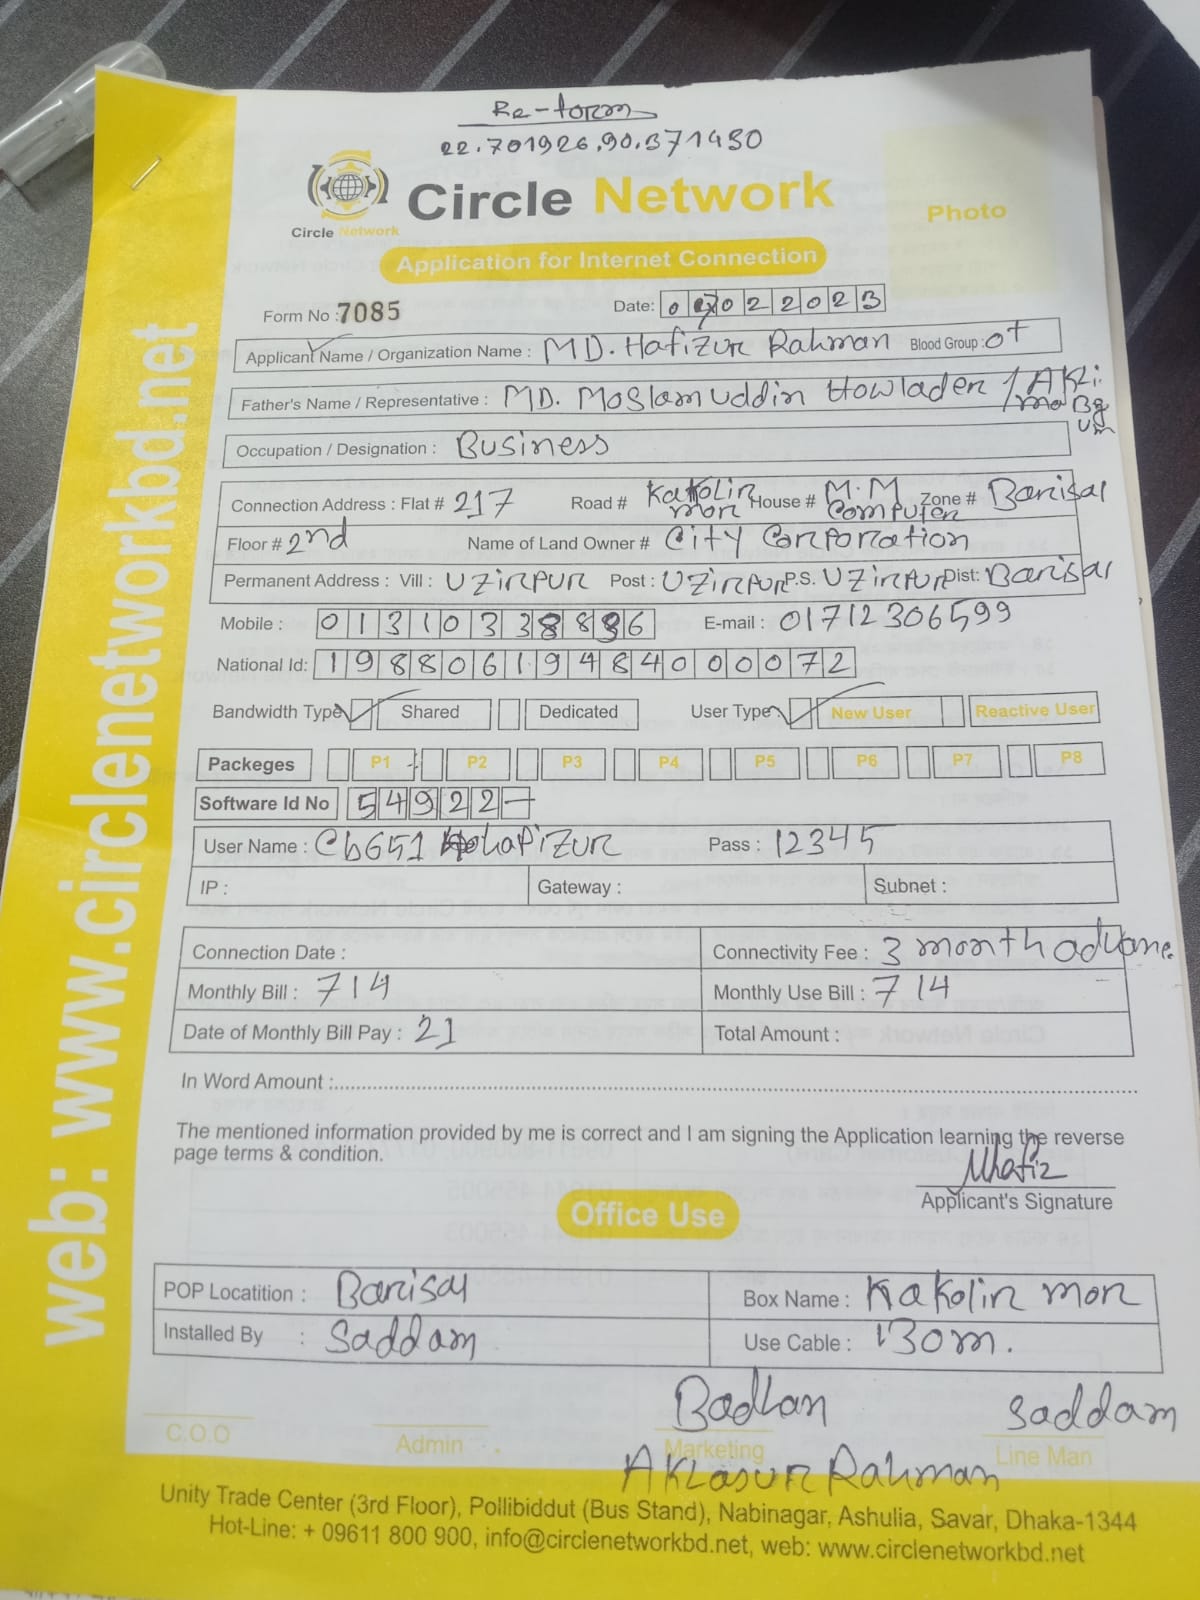 Re-form
22.701926,90.371430
Circle Network
Circle Network
Photo
Application for Internet Connection
Form No :7085
Date: 02022023
Applicant Name / Organization Name : MD. Hafizur Rahman Blood Group : O+
Father's Name / Representative : MD. Moslamuddin Howlader / Akli
ma Bg
um
Occupation / Designation : Business
Connection Address : Flat # 217 Road # Kakolir mor House # M.M Computer Zone # Barisal
Floor # 2nd Name of Land Owner # City Corporation
Permanent Address : Vill : Uzirpur Post : Uzirpur P.S. Uzirpur Dist: Barisal
Mobile : 01310338886 E-mail : 01712306599
National Id: 19880619484000072
Bandwidth Type: Shared Dedicated User Type: New User Reactive User
Packeges P1 P2 P3 P4 P5 P6 P7 P8
Software Id No 54922
User Name : Cb651 hafizur Pass : 12345
IP : Gateway : Subnet :
Connection Date : Connectivity Fee : 3 month advance.
Monthly Bill : 714 Monthly Use Bill : 714
Date of Monthly Bill Pay : 21 Total Amount :
In Word Amount :
The mentioned information provided by me is correct and I am signing the Application learning the reverse
page terms & condition.
Mhafiz
Applicant's Signature
Office Use
POP Locatition : Barisal Box Name : Kakolir mor
Installed By : Saddam Use Cable : 130m.
Badhan Saddam
C.O.O Admin Marketing Line Man
Aklasur Rahman
Unity Trade Center (3rd Floor), Pollibiddut (Bus Stand), Nabinagar, Ashulia, Savar, Dhaka-1344
Hot-Line: + 09611 800 900, info@circlenetworkbd.net, web: www.circlenetworkbd.net
web: www.circlenetworkbd.net